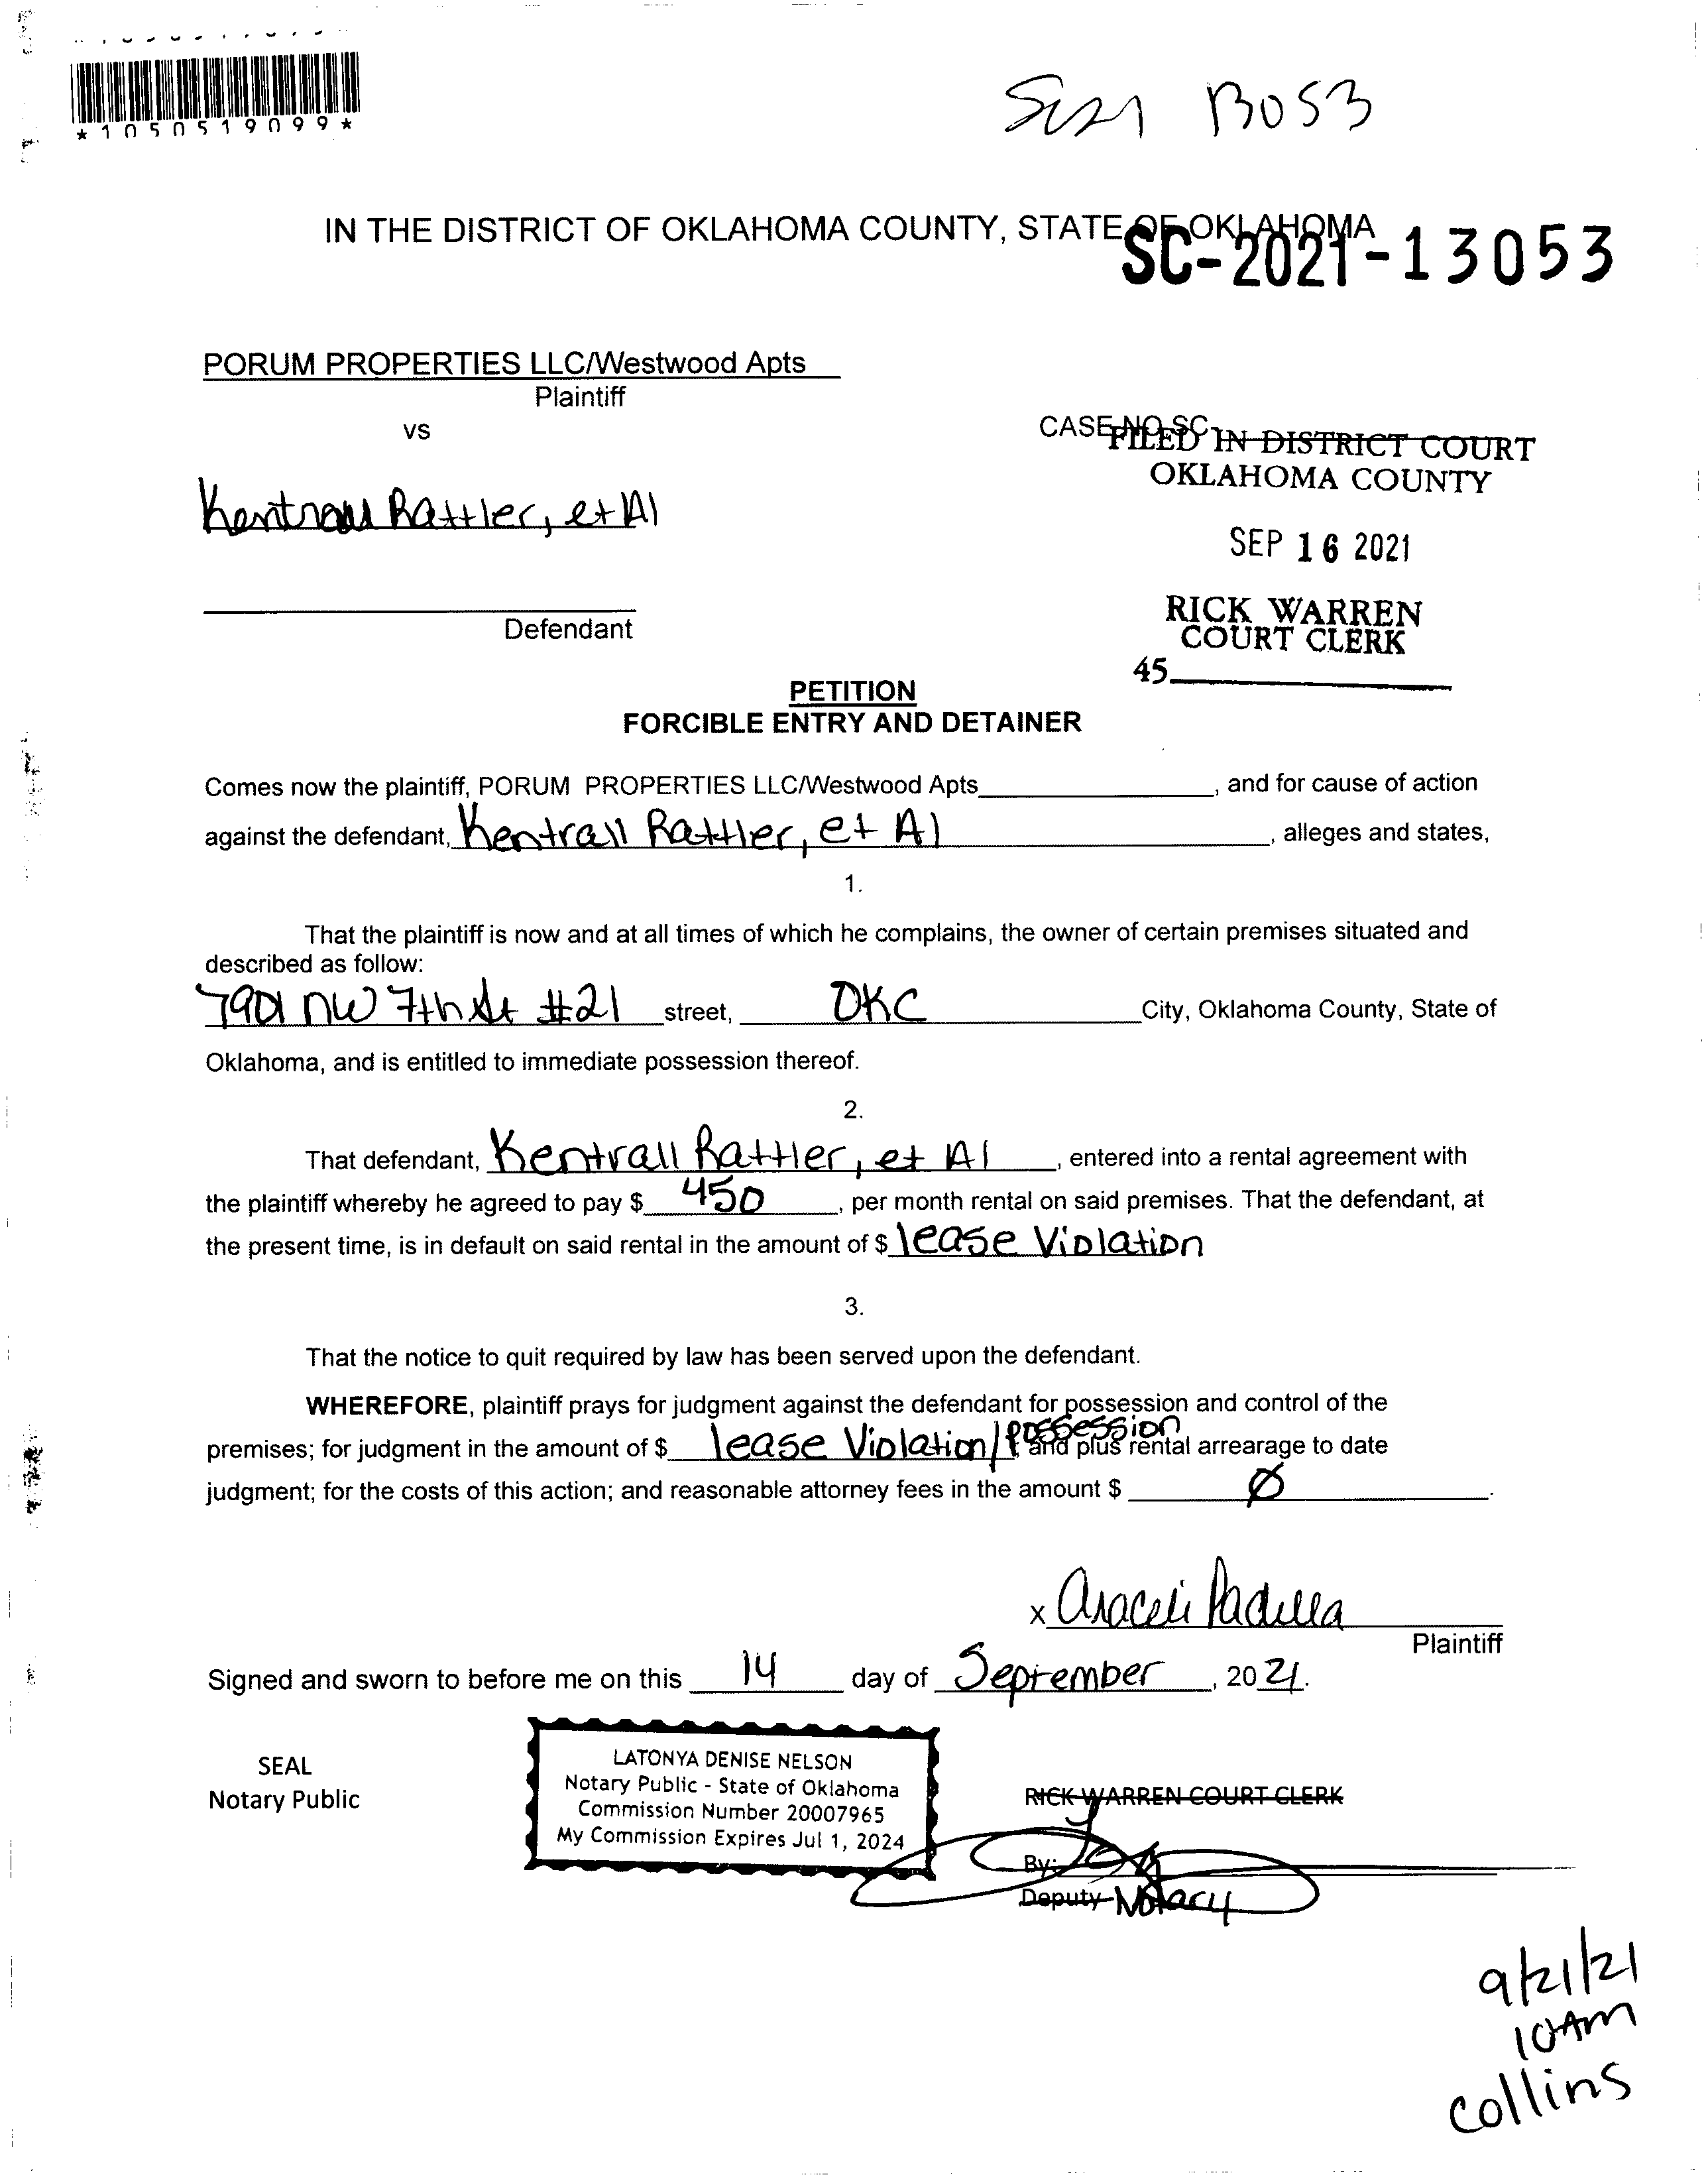 *1050519099*
SC21 13053
IN THE DISTRICT OF OKLAHOMA COUNTY, STATE OF OKLAHOMA
SC-2021-13053
PORUM PROPERTIES LLC/Westwood Apts
Plaintiff
vs
CASE NO SC
FILED IN DISTRICT COURT
OKLAHOMA COUNTY
Kentrall Rattler, et Al
SEP 16 2021
Defendant
RICK WARREN
COURT CLERK
45
PETITION
FORCIBLE ENTRY AND DETAINER
Comes now the plaintiff, PORUM PROPERTIES LLC/Westwood Apts, and for cause of action
against the defendant, Kentrall Rattler, et Al, alleges and states,
1.
That the plaintiff is now and at all times of which he complains, the owner of certain premises situated and
described as follow:
7901 NW 7th St #21 street, OKC City, Oklahoma County, State of
Oklahoma, and is entitled to immediate possession thereof.
2.
That defendant, Kentrall Rattler, et Al, entered into a rental agreement with
the plaintiff whereby he agreed to pay $ 450, per month rental on said premises. That the defendant, at
the present time, is in default on said rental in the amount of $ lease Violation
3.
That the notice to quit required by law has been served upon the defendant.
WHEREFORE, plaintiff prays for judgment against the defendant for possession and control of the
premises; for judgment in the amount of $ lease Violation/possession, and plus rental arrearage to date
judgment; for the costs of this action; and reasonable attorney fees in the amount $ Ø.
x Araceli Padilla
Plaintiff
Signed and sworn to before me on this 14 day of September, 2021.
SEAL
Notary Public
LATONYA DENISE NELSON
Notary Public - State of Oklahoma
Commission Number 20007965
My Commission Expires Jul 1, 2024
RICK WARREN COURT CLERK
By:
Deputy Notary
9/21/21
10Am
Collins